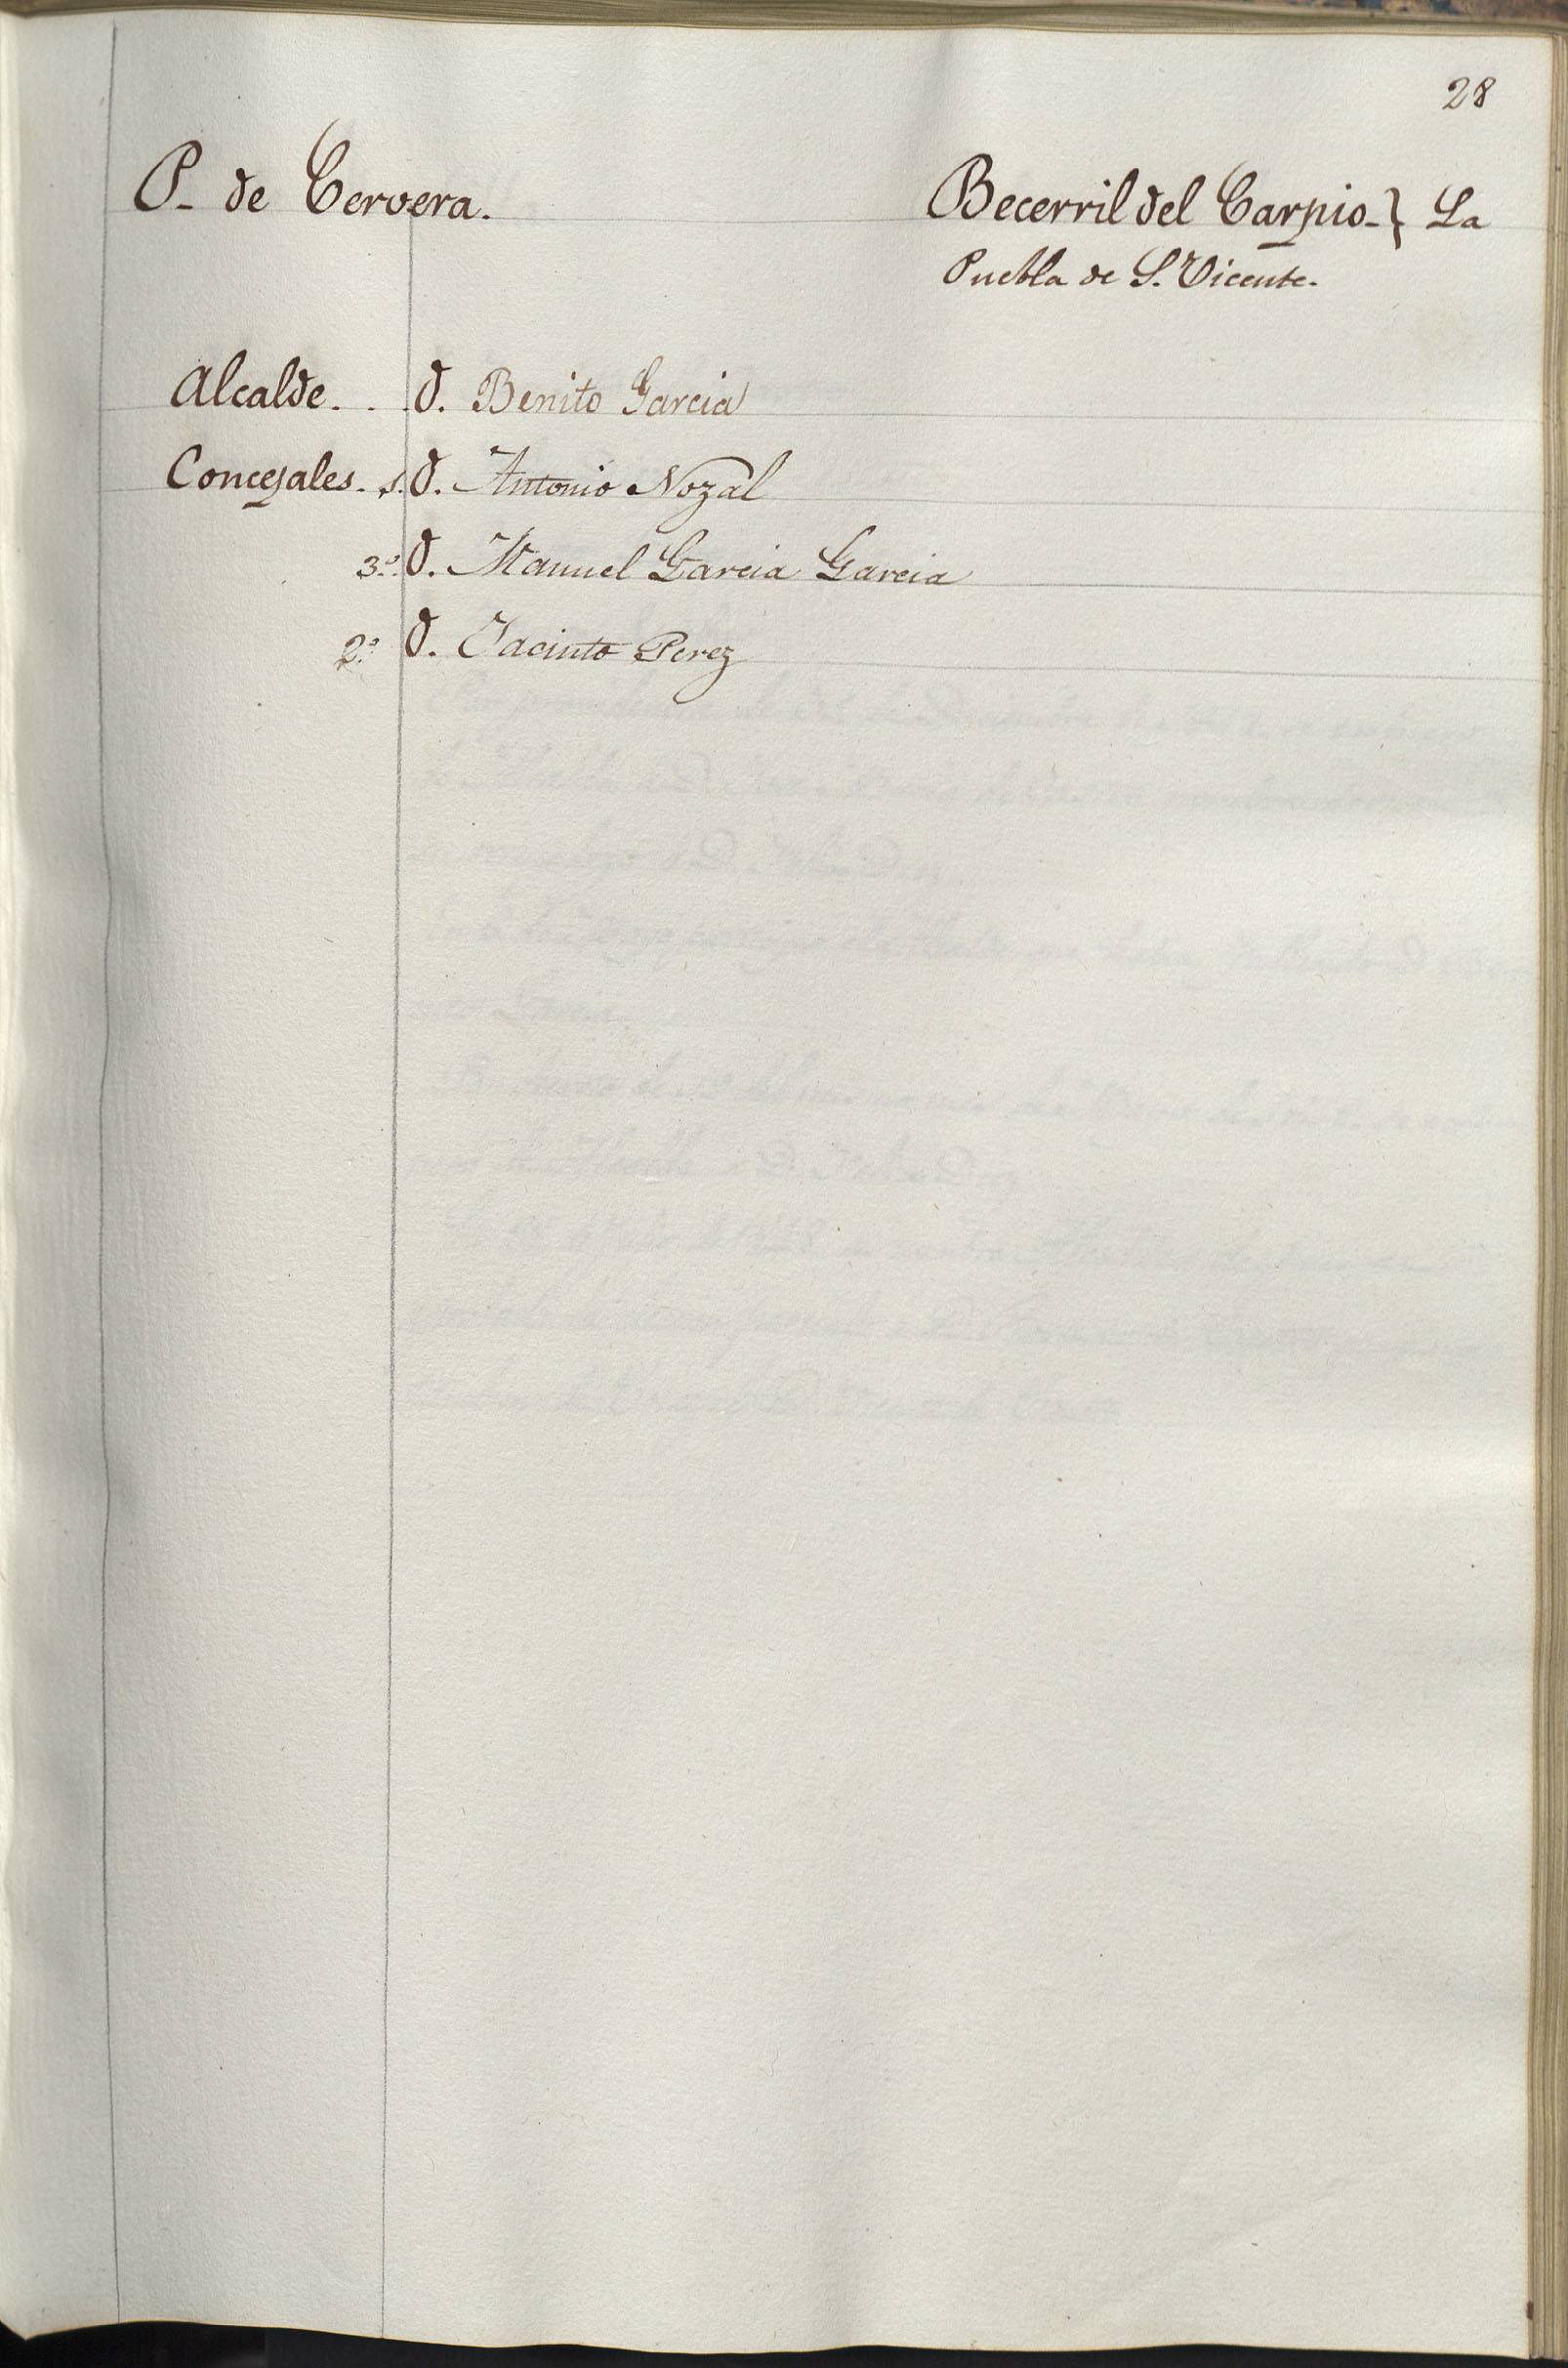 28
P. de Cervera.
Becerril del Carpio.} La
Puebla de S. Vicente.
Alcalde. . . D. Benito Garcia
Concejales. s. D. Antonio Nozal
3.º D. Manuel Garcia Garcia
2.º D. Jacinto Perez